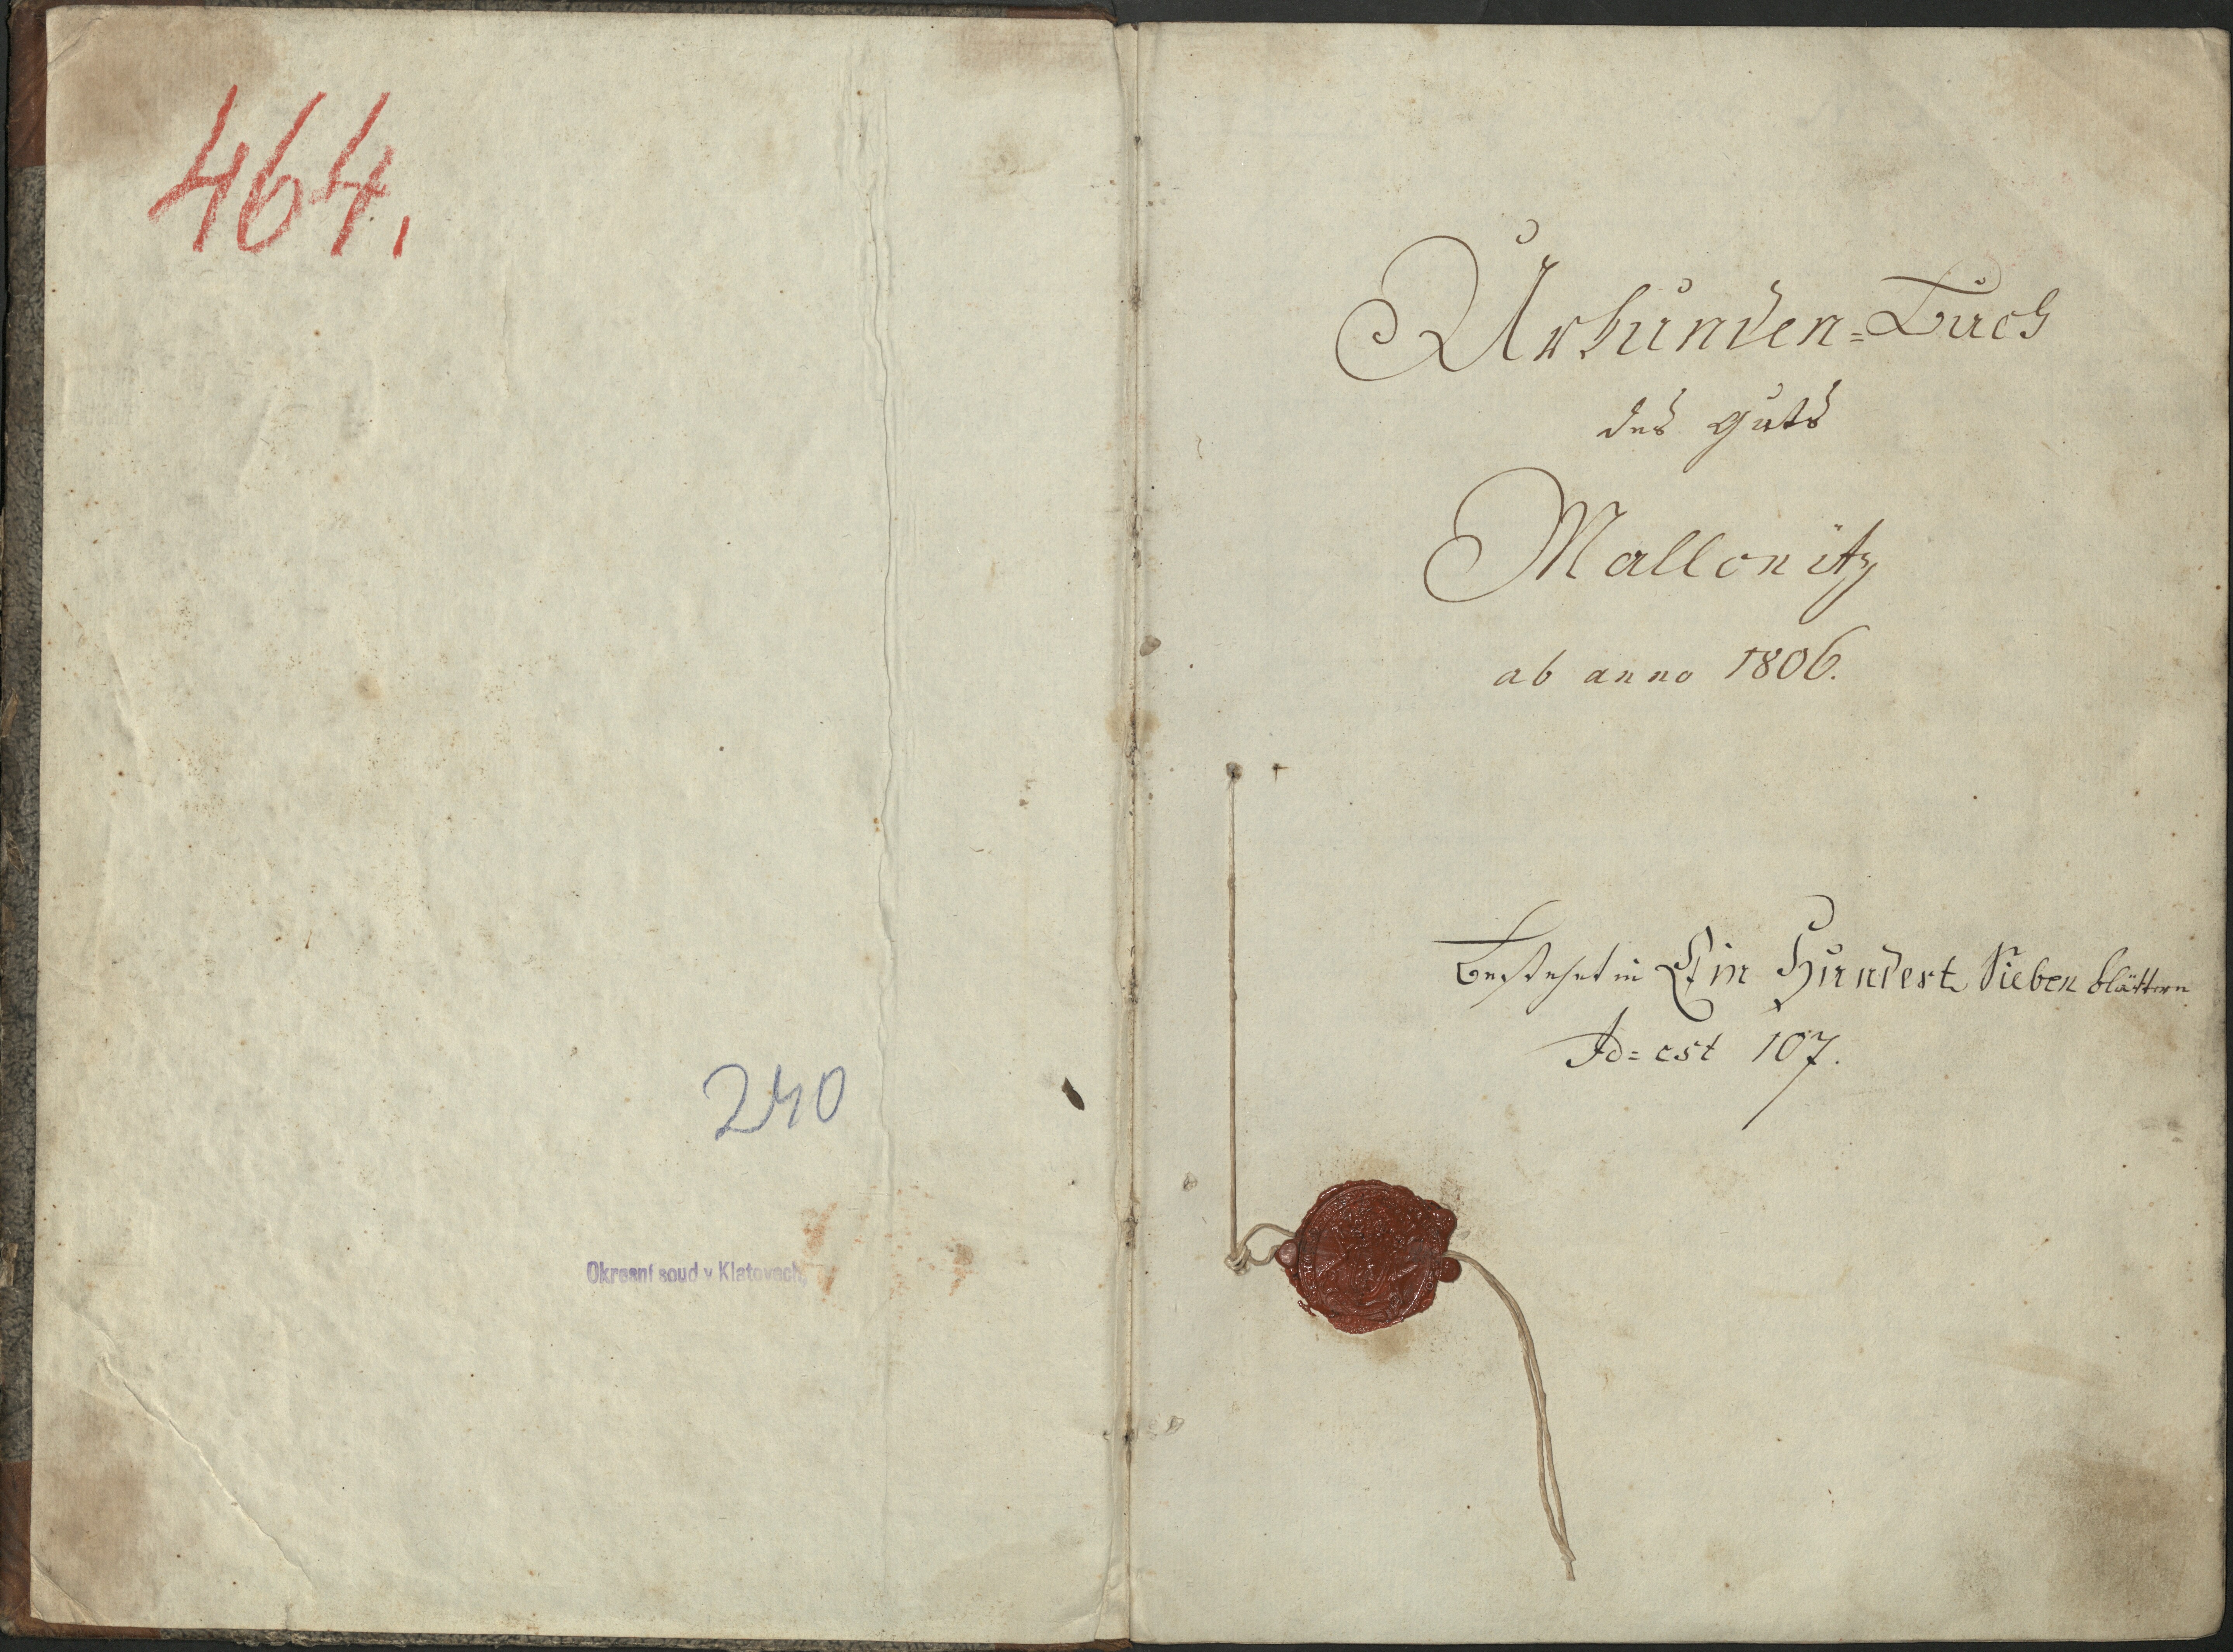 464.
240
Okresní soud v Klatovech,
Urkunden=Buch
des Guts
Mallonitz
ab anno 1806.
Bestehet in Ein Hundert Sieben blättern
Id=est 107.